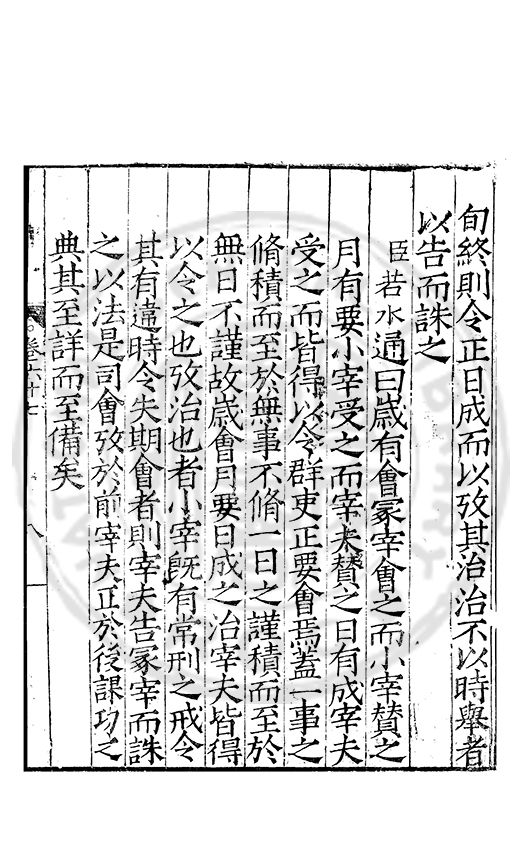 旬終則令正日成而以攷其治治不以時舉者
以告而誅之
臣若水通曰歲有會冢宰會之而小宰贊之
月有要小宰受之而宰夫贊之日有成宰夫
受之而皆得以令群吏正要會焉蓋一事之
脩積而至於無事不脩一日之謹積而至於
無日不謹故歲會月要日成之治宰夫皆得
以令之也攷治也者小宰旣有常刑之戒令
其有違時令失期會者則宰夫告冢宰而誅
之以法是司會攷於前宰夫正於後課功之
典其至詳而至備矣
卷六十七
八